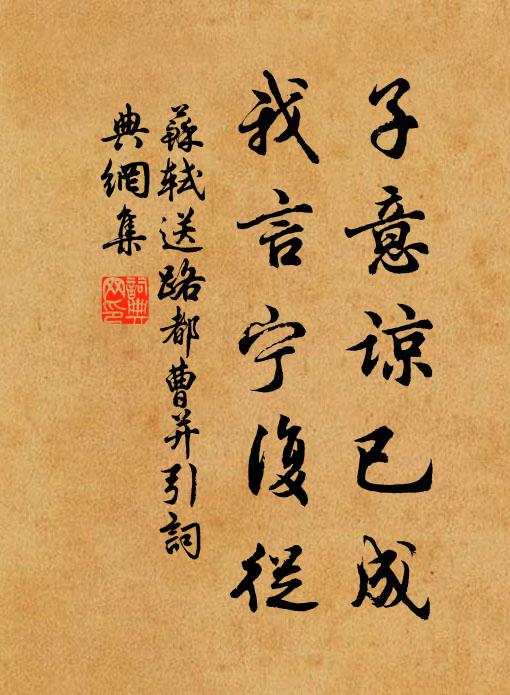 子意諒已成
我言宁復從
蘇軾送路都曹并引詞
典網集
詞典
网印